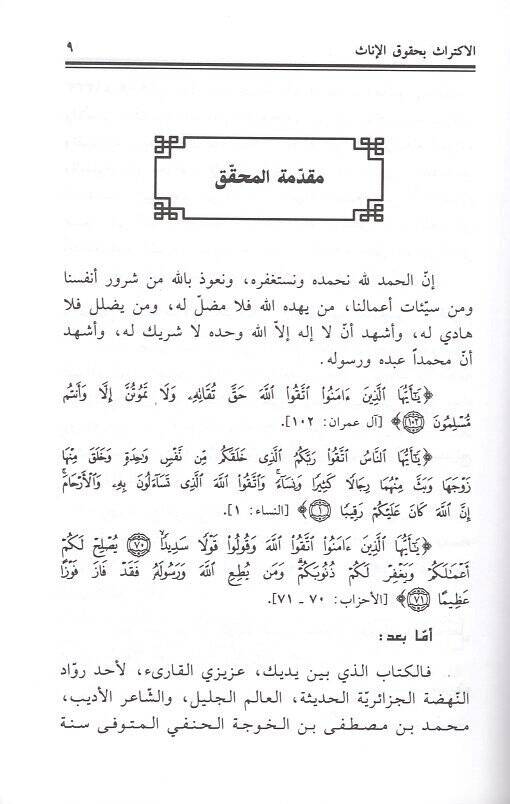 الاكتراث بحقوق الإناث ٩
مقدّمة المحقّق
إنّ الحمد لله نحمده ونستغفره، ونعوذ بالله من شرور أنفسنا
ومن سيّئات أعمالنا، من يهده الله فلا مضلّ له، ومن يضلل فلا
هادي له، وأشهد أنّ لا إله إلاّ الله وحده لا شريك له، وأشهد
أنّ محمداً عبده ورسوله.
﴿يَٰٓأَيُّهَا ٱلَّذِينَ ءَامَنُوا۟ ٱتَّقُوا۟ ٱللَّهَ حَقَّ تُقَاتِهِۦ وَلَا تَمُوتُنَّ إِلَّا وَأَنتُم
مُّسْلِمُونَ ١٠٢﴾ [آل عمران: ١٠٢].
﴿يَٰٓأَيُّهَا ٱلنَّاسُ ٱتَّقُوا۟ رَبَّكُمُ ٱلَّذِى خَلَقَكُم مِّن نَّفْسٍ وَٰحِدَةٍ وَخَلَقَ مِنْهَا
زَوْجَهَا وَبَثَّ مِنْهُمَا رِجَالًا كَثِيرًا وَنِسَآءً ۚ وَٱتَّقُوا۟ ٱللَّهَ ٱلَّذِى تَسَآءَلُونَ بِهِۦ وَٱلْأَرْحَامَ ۚ
إِنَّ ٱللَّهَ كَانَ عَلَيْكُمْ رَقِيبًا ١﴾ [النساء: ١].
﴿يَٰٓأَيُّهَا ٱلَّذِينَ ءَامَنُوا۟ ٱتَّقُوا۟ ٱللَّهَ وَقُولُوا۟ قَوْلًا سَدِيدًا ٧٠ يُصْلِحْ لَكُمْ
أَعْمَٰلَكُمْ وَيَغْفِرْ لَكُمْ ذُنُوبَكُمْ ۗ وَمَن يُطِعِ ٱللَّهَ وَرَسُولَهُۥ فَقَدْ فَازَ فَوْزًا
عَظِيمًا ٧١﴾ [الأحزاب: ٧٠ ـ ٧١].
أمّا بعد:
فالكتاب الذي بين يديك، عزيزي القارىء، لأحد روّاد
النّهضة الجزائريّة الحديثة، العالم الجليل، والشّاعر الأديب،
محمد بن مصطفى بن الخوجة الحنفي المتوفى سنة